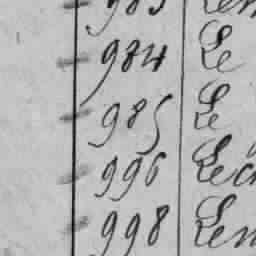 984 Le
985 Le
996 Lec
998 Lem